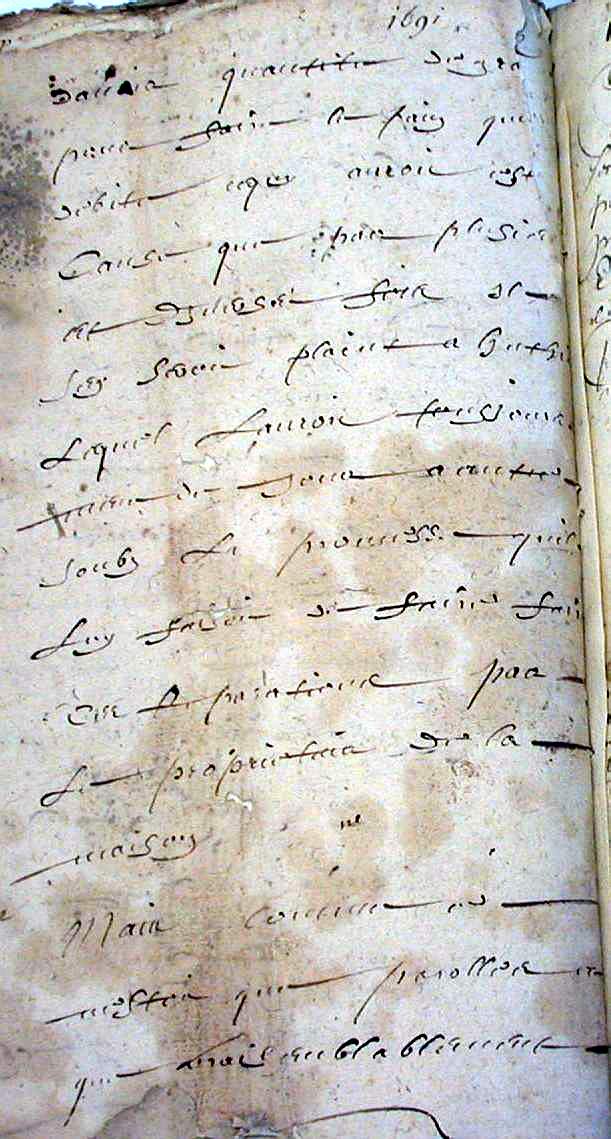 1691
quantite de gra
pour faire le pain qu
debite auroit est
Cause que par plusie
et diverses fois il
Sen seroit plaint a
Lequel Lauroit tousiours
de Jour a autre
Soubz La promesse quil
Luy faisoit de faire fair
Les Reparations par
Le proprietaire de la
maison
Mais comme ce
nestoit que parolles et
que vraisemblablement